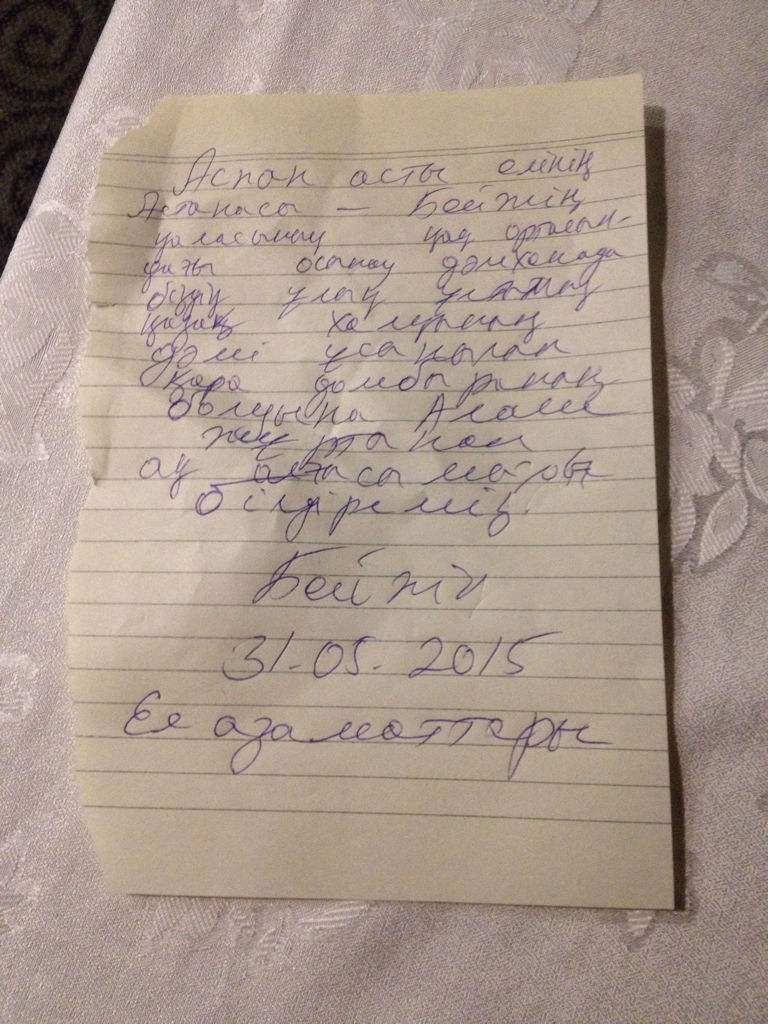 Аспан асты елінің
Астанасы — Бейжің
қаласының қақ ортасын-
дағы осынау дәмханада
біздің ұлық ұлттың
қазақ халқының
дәмі ұсанылған
қара домбыраның
болуына Алаш
жұртынан
ау алғысымызды
білдіреміз.
Бейжің
31.05.2015
Ел азаматтары